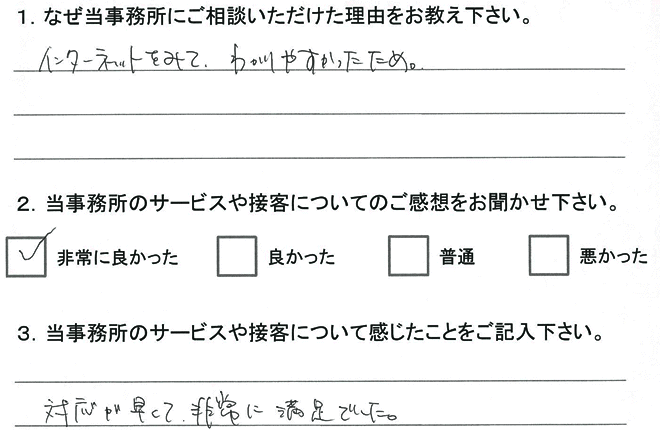 1. なぜ当事務所にご相談いただけた理由をお教え下さい。
インターネットをみて、わかりやすかったため。
2. 当事務所のサービスや接客についてのご感想をお聞かせ下さい。
非常に良かった 良かった 普通 悪かった
3. 当事務所のサービスや接客について感じたことをご記入下さい。
対応が早くて、非常に満足でした。